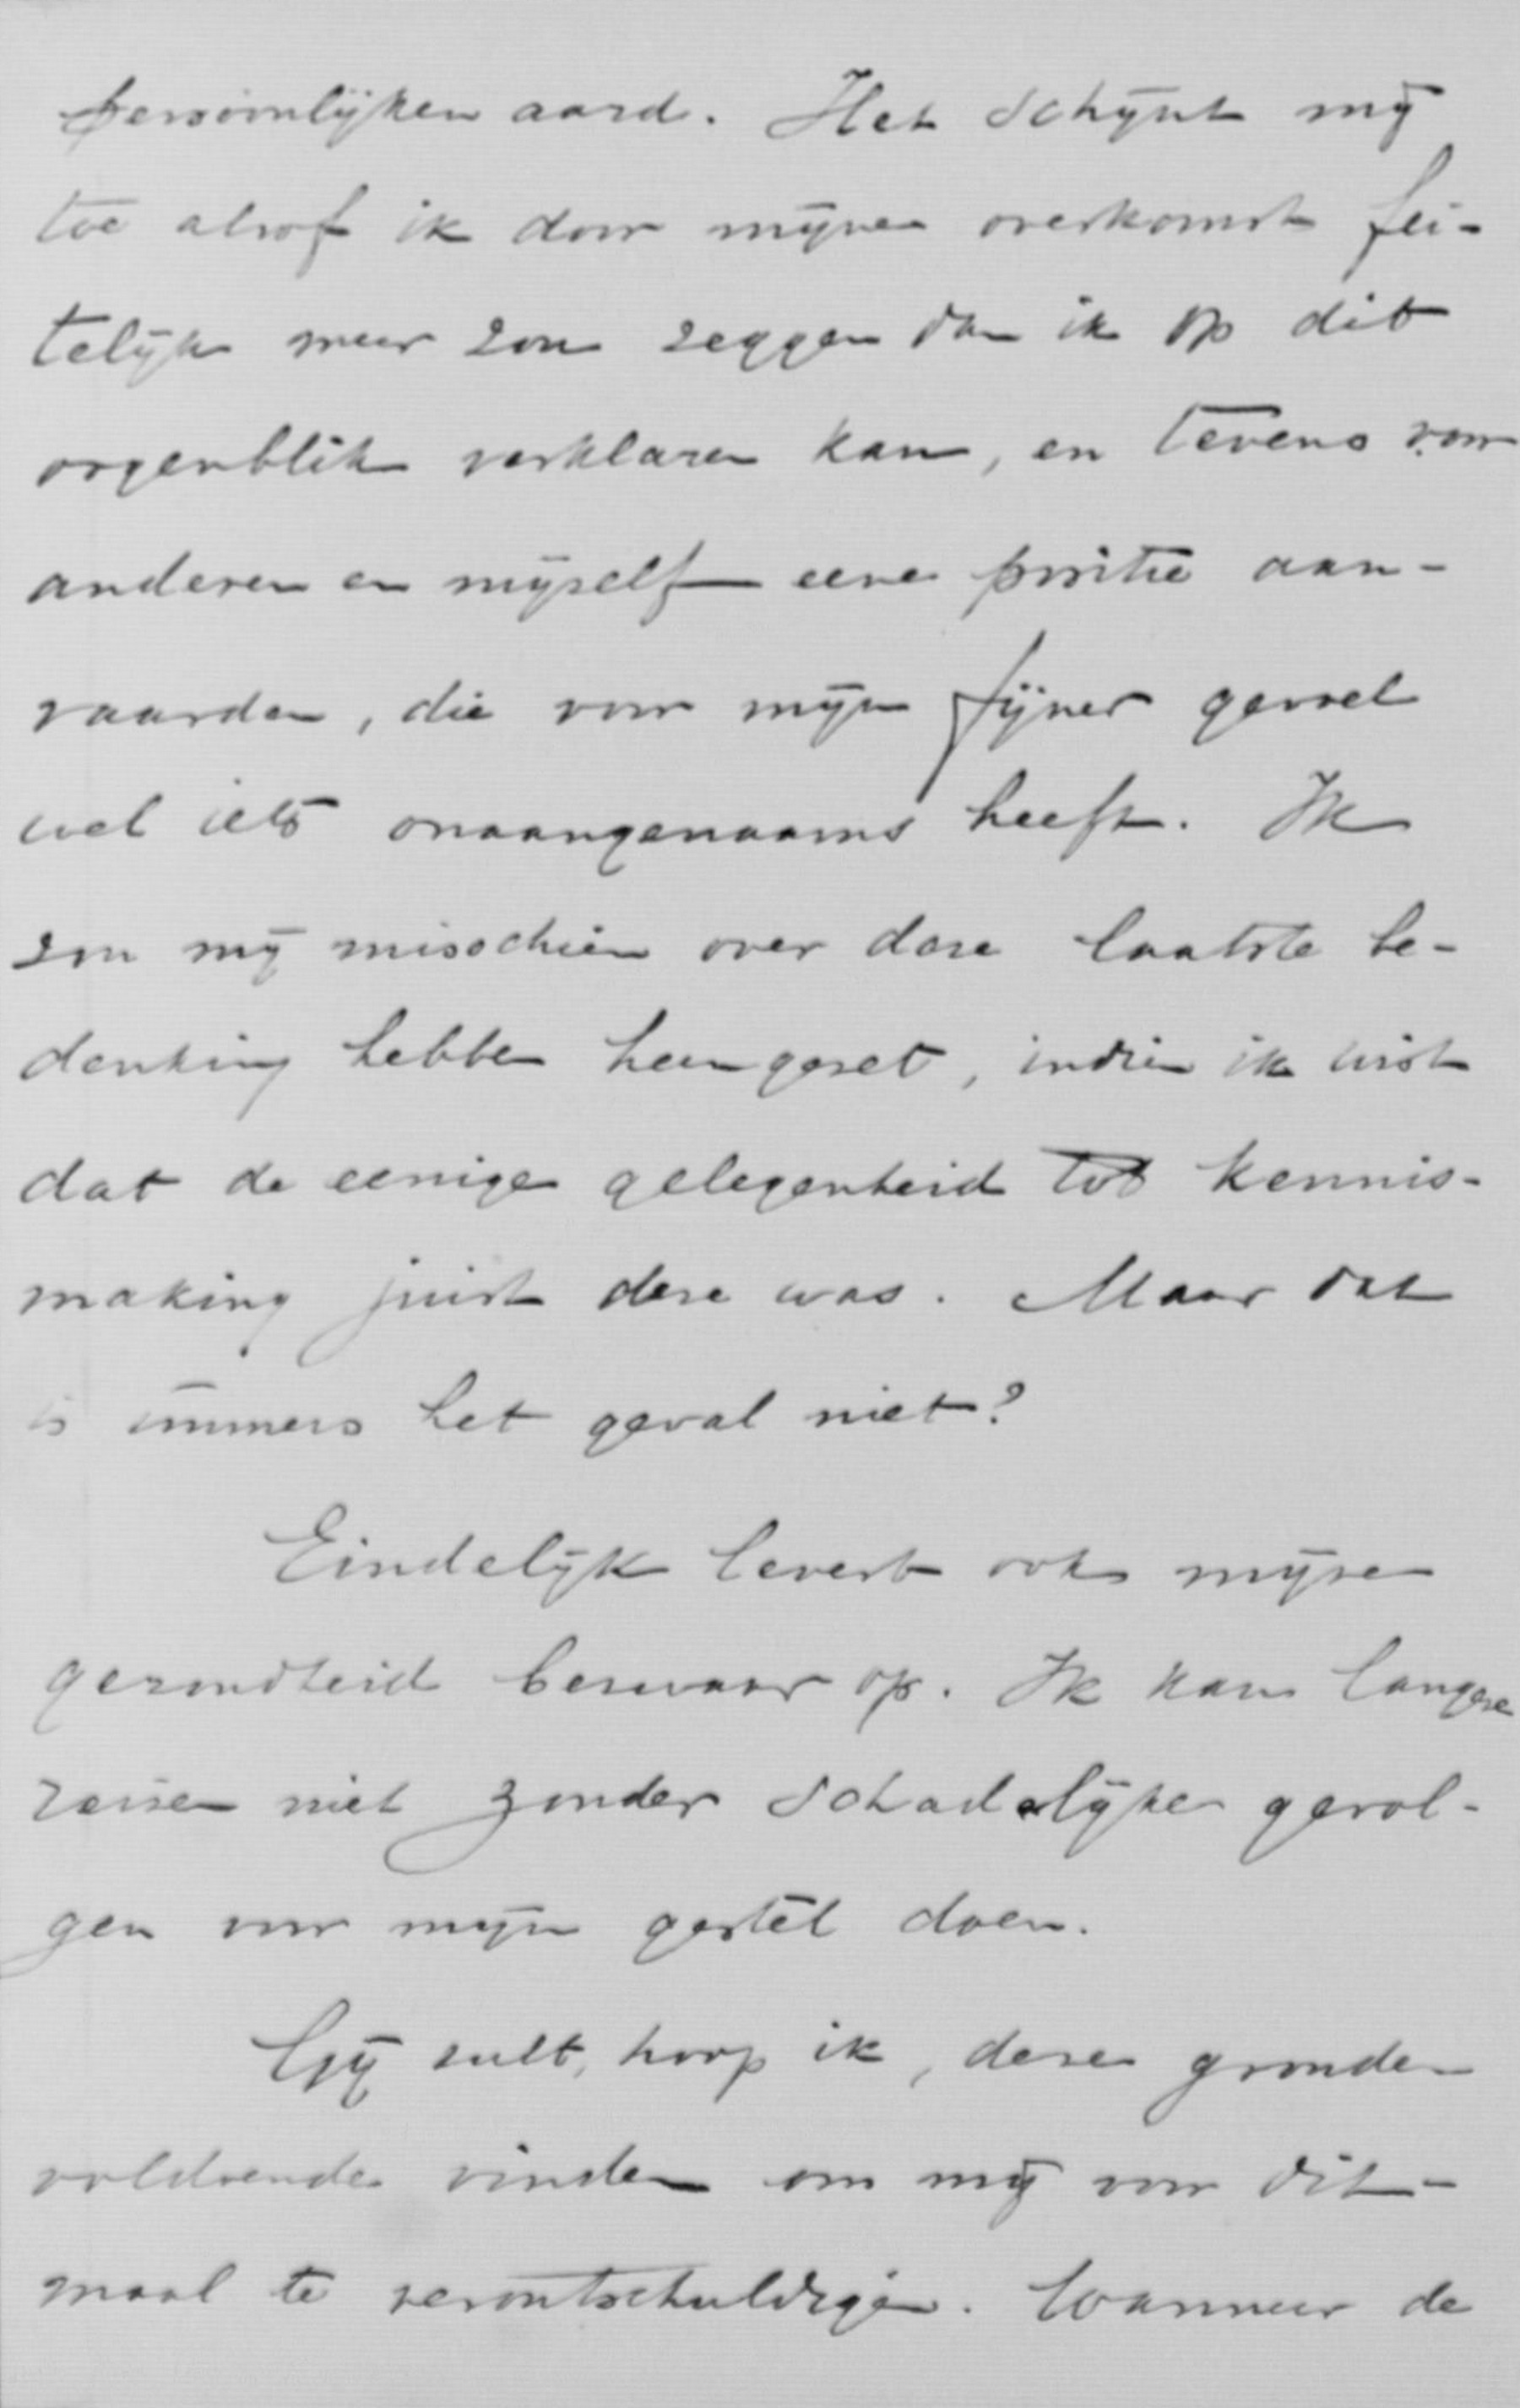 persoonlijken aard. Het schijnt mij
toe alsof ik door mijne overkomst fei-
telijk meer zou zeggen dan ik op dit
oogenblik verklaren kan, en tevens voor
anderen en mijself eene positie aan-
vaarden, die voor mijn fijner gevoel
wel iets onaangenaams heeft. Ik
zou mij misschien over deze laatste be-
denking hebben heengezet, indien ik wist
dat de eenige gelegenheid tot kennis-
making juist deze was. Maar dat
is immers het geval niet?
Eindelijk levert ook mijne
gezondheid bezwaar op. Ik kan langere
reizen niet zonder schadelijke gevol-
gen voor mijn gestel doen.
Gij zult, hoop ik, deze gronden
voldoende vinden om mij voor dit-
maal te verontschuldigen. Wanneer de